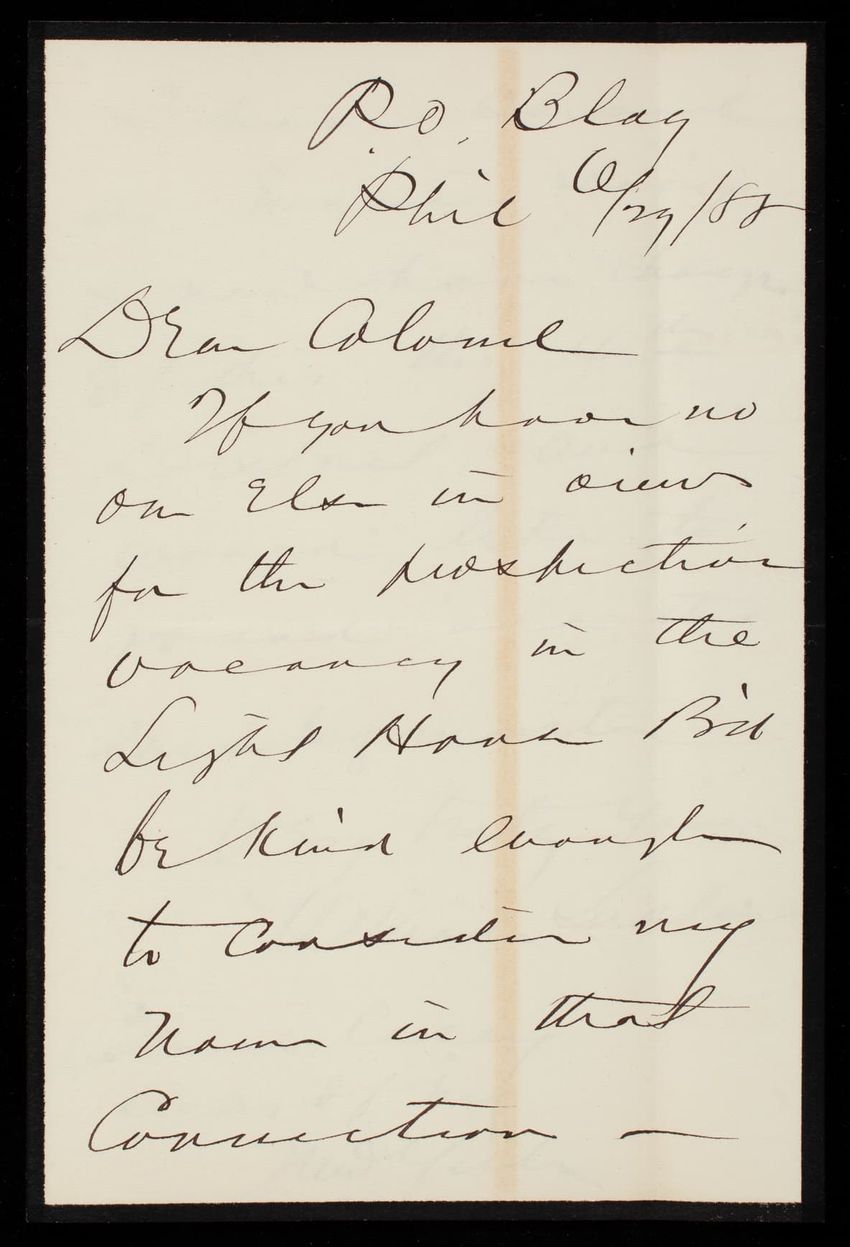 P.O. Bldg
Phil 6/29/88
Dear Colonel
If you have no
one Else in view
for the prospective
vacancy in the
Light House B'd
be kind enough
to consider my
name in that
Connection —